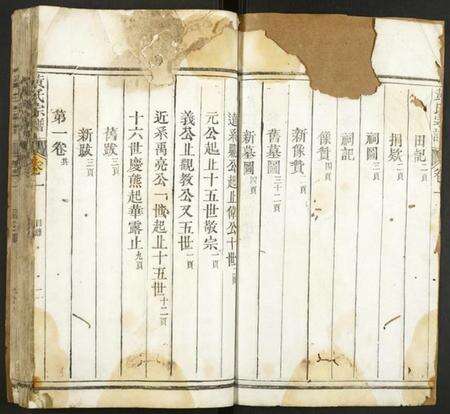 田記二頁
捐欵二頁
祠圖三頁
祠記
像贊四頁
新像贊二頁
舊墓圖三十二頁
新墓圖四頁
遠系顯公起止偉公十世
元公起止十五世敬宗一頁
義公止觀教公又五世一頁
近系禹亮公一世起止十五世十二頁
十六世慶熊起華露止九頁
舊跋三頁
新跋三頁
第一卷共
黃氏宗譜
卷一
目錄